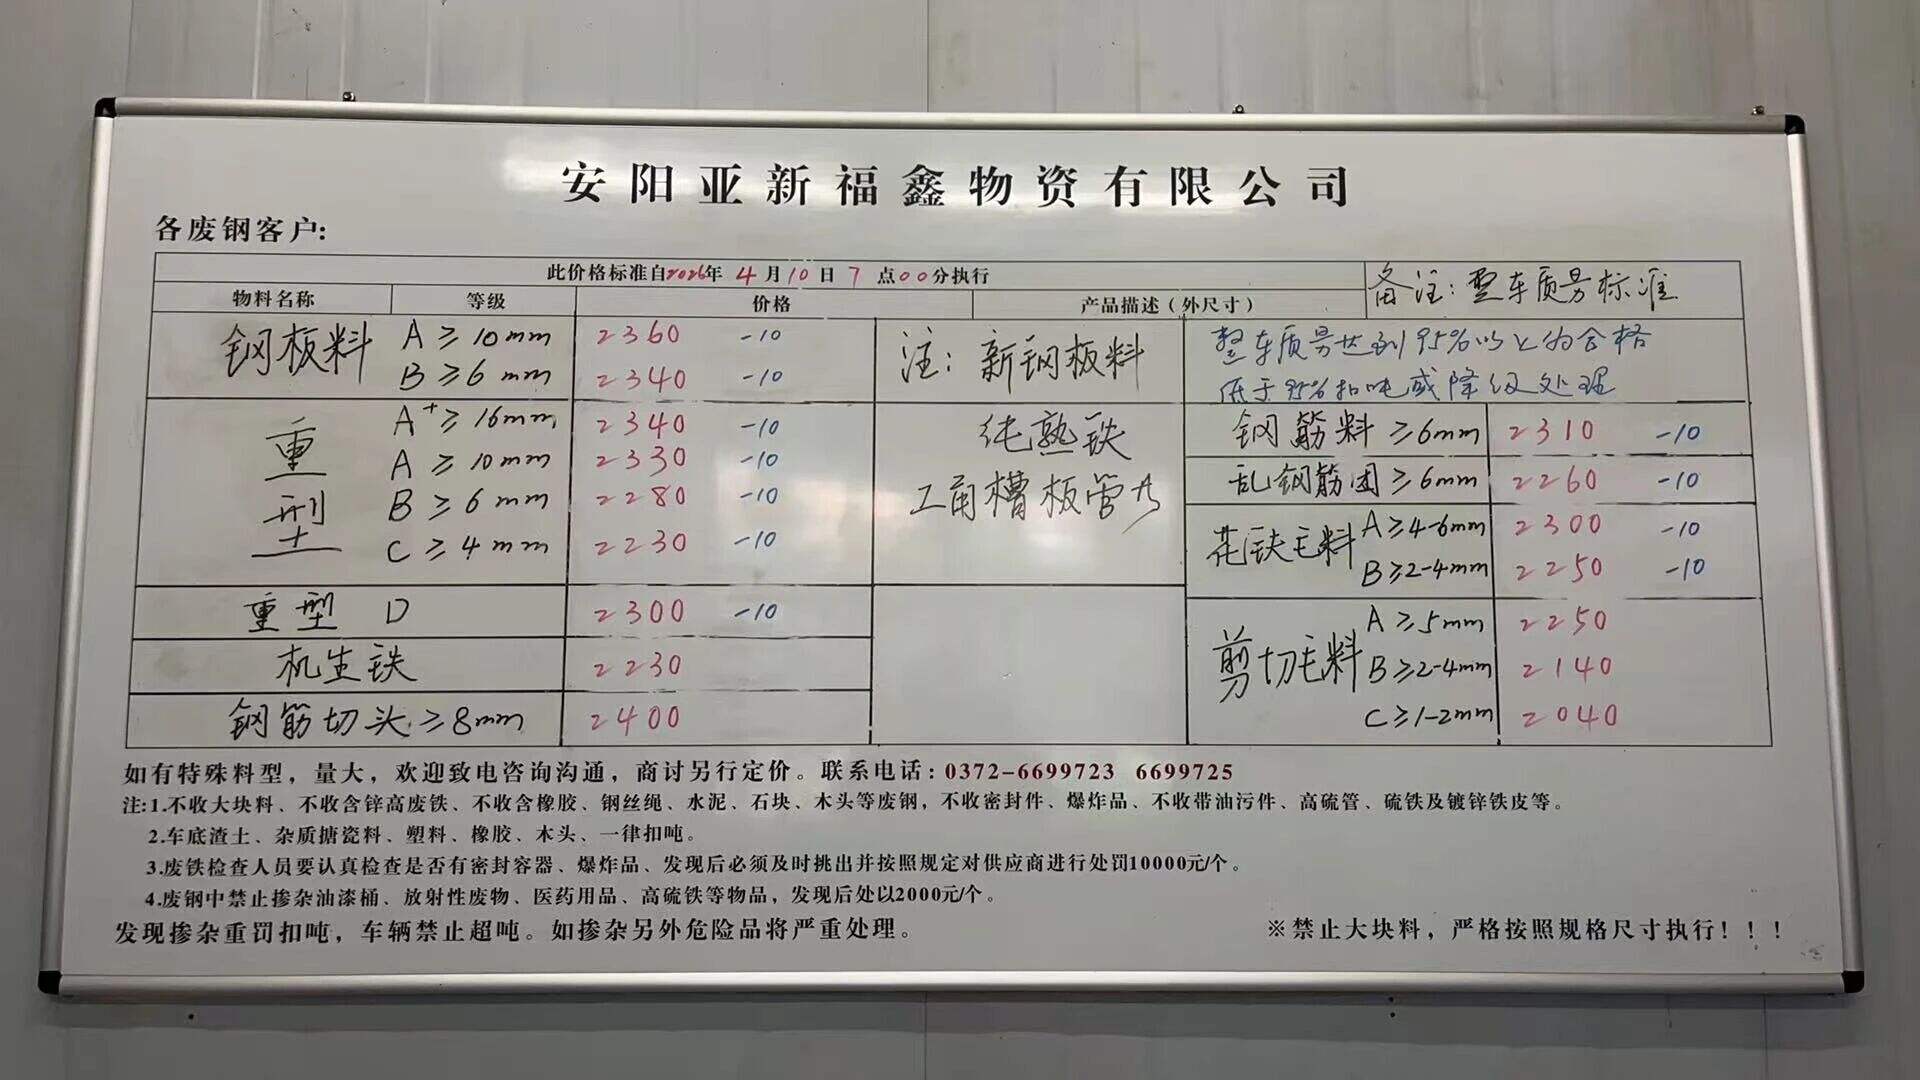 安阳亚新福鑫物资有限公司
各废钢客户:
此价格标准自2026年 4 月 10 日 7 点00分执行
备注: 整车质量标准
物料名称 等级 价格 产品描述(外尺寸)
钢板料 A ≥ 10mm 2360 -10
B ≥ 6 mm 2340 -10
注: 新钢板料
整车质量达到95%以上的合格
低于95%扣吨或降级处理
重型 A+ ≥ 16mm 2340 -10
A ≥ 10mm 2330 -10
B ≥ 6 mm 2280 -10
C ≥ 4 mm 2230 -10
纯熟铁
工角槽板管
重型 D 2300 -10
机生铁 2230
钢筋切头 ≥8mm 2400
钢筋料 ≥6mm 2310 -10
乱钢筋团 ≥6mm 2260 -10
花铁毛料 A≥4-6mm 2300 -10
B≥2-4mm 2250 -10
剪切毛料 A ≥5mm 2250
B≥2-4mm 2140
C≥1-2mm 2040
如有特殊料型，量大，欢迎致电咨询沟通，商讨另行定价。联系电话: 0372-6699723 6699725
注:1.不收大块料、不收含锌高废铁、不收含橡胶、钢丝绳、水泥、石块、木头等废钢，不收密封件、爆炸品、不收带油污件、高硫管、硫铁及镀锌铁皮等。
2.车底渣土、杂质搪瓷料、塑料、橡胶、木头、一律扣吨。
3.废铁检查人员要认真检查是否有密封容器、爆炸品、发现后必须及时挑出并按照规定对供应商进行处罚10000元/个。
4.废钢中禁止掺杂油漆桶、放射性废物、医药用品、高硫铁等物品，发现后处以2000元/个。
发现掺杂重罚扣吨，车辆禁止超吨。如掺杂另外危险品将严重处理。
※禁止大块料，严格按照规格尺寸执行！！！